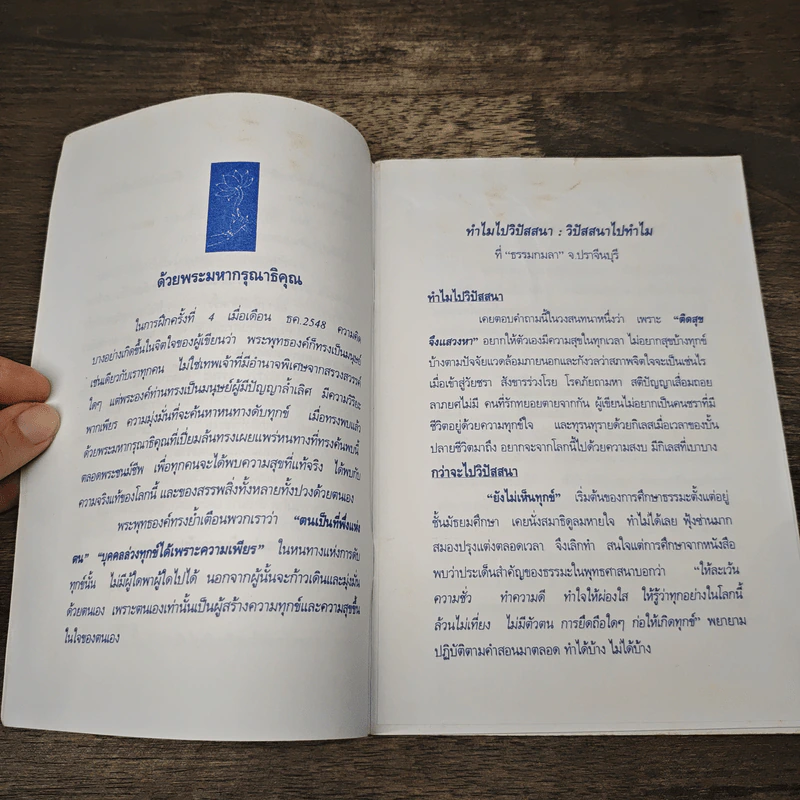 ด้วยพระมหากรุณาธิคุณ
ในการฝึกครั้งที่ 4 เมื่อเดือน ธค.2548 ความคิด
บางอย่างเกิดขึ้นในจิตใจของผู้เขียนว่า พระพุทธองค์ก็ทรงเป็นมนุษย์
เช่นเดียวกับเราทุกคน ไม่ใช่เทพเจ้าที่มีอำนาจพิเศษจากสรวงสวรรค์
ใดๆ แต่พระองค์ท่านทรงเป็นมนุษย์ผู้มีปัญญาล้ำเลิศ มีความวิริยะ
พากเพียร ความมุ่งมั่นที่จะค้นหาหนทางดับทุกข์ เมื่อทรงพบแล้ว
ด้วยพระมหากรุณาธิคุณที่เปี่ยมล้นทรงเผยแพร่หนทางที่ทรงค้นพบนี้
ตลอดพระชนม์ชีพ เพื่อทุกคนจะได้พบความสุขที่แท้จริง ได้พบกับ
ความจริงแท้ของโลกนี้ และของสรรพสิ่งทั้งหลายทั้งปวงด้วยตนเอง
พระพุทธองค์ทรงย้ำเตือนพวกเราว่า "ตนเป็นที่พึ่งแห่ง
ตน" "บุคคลล่วงทุกข์ได้เพราะความเพียร" ในหนทางแห่งการดับ
ทุกข์นั้น ไม่มีผู้ใดพาผู้ใดไปได้ นอกจากผู้นั้นจะก้าวเดินและมุ่งมั่น
ด้วยตนเอง เพราะตนเองเท่านั้นเป็นผู้สร้างความทุกข์และความสุขขึ้น
ในใจของตนเอง
ทำไมไปวิปัสสนา : วิปัสสนาไปทำไม
ที่ "ธรรมกมลา" จ.ปราจีนบุรี
ทำไมไปวิปัสสนา
เคยตอบคำถามนี้ในวงสนทนาหนึ่งว่า เพราะ "ติดสุข
จึงแสวงหา" อยากให้ตัวเองมีความสุขในทุกเวลา ไม่อยากสุขบ้างทุกข์
บ้างตามปัจจัยแวดล้อมภายนอกและกังวลว่าสภาพจิตใจจะเป็นเช่นไร
เมื่อเข้าสู่วัยชรา สังขารร่วงโรย โรคภัยถามหา สติปัญญาเสื่อมถอย
ลาภยศไม่มี คนที่รักทยอยตายจากกัน ผู้เขียนไม่อยากเป็นคนชราที่มี
ชีวิตอยู่ด้วยความทุกข์ใจ และทุรนทุรายด้วยกิเลสเมื่อเวลาของบั้น
ปลายชีวิตมาถึง อยากจะจากโลกนี้ไปด้วยความสงบ มีกิเลสที่เบาบาง
กว่าจะไปวิปัสสนา
"ยังไม่เห็นทุกข์" เริ่มต้นของการศึกษาธรรมะตั้งแต่อยู่
ชั้นมัธยมศึกษา เคยนั่งสมาธิดูลมหายใจ ทำไม่ได้เลย ฟุ้งซ่านมาก
สมองปรุงแต่งตลอดเวลา จึงเลิกทำ สนใจแต่การศึกษาจากหนังสือ
พบว่าประเด็นสำคัญของธรรมะในพุทธศาสนาบอกว่า "ให้ละเว้น
ความชั่ว ทำความดี ทำใจให้ผ่องใส ให้รู้ว่าทุกอย่างในโลกนี้
ล้วนไม่เที่ยง ไม่มีตัวตน การยึดถือใดๆ ก่อให้เกิดทุกข์" พยายาม
ปฏิบัติตามคำสอนมาตลอด ทำได้บ้าง ไม่ได้บ้าง